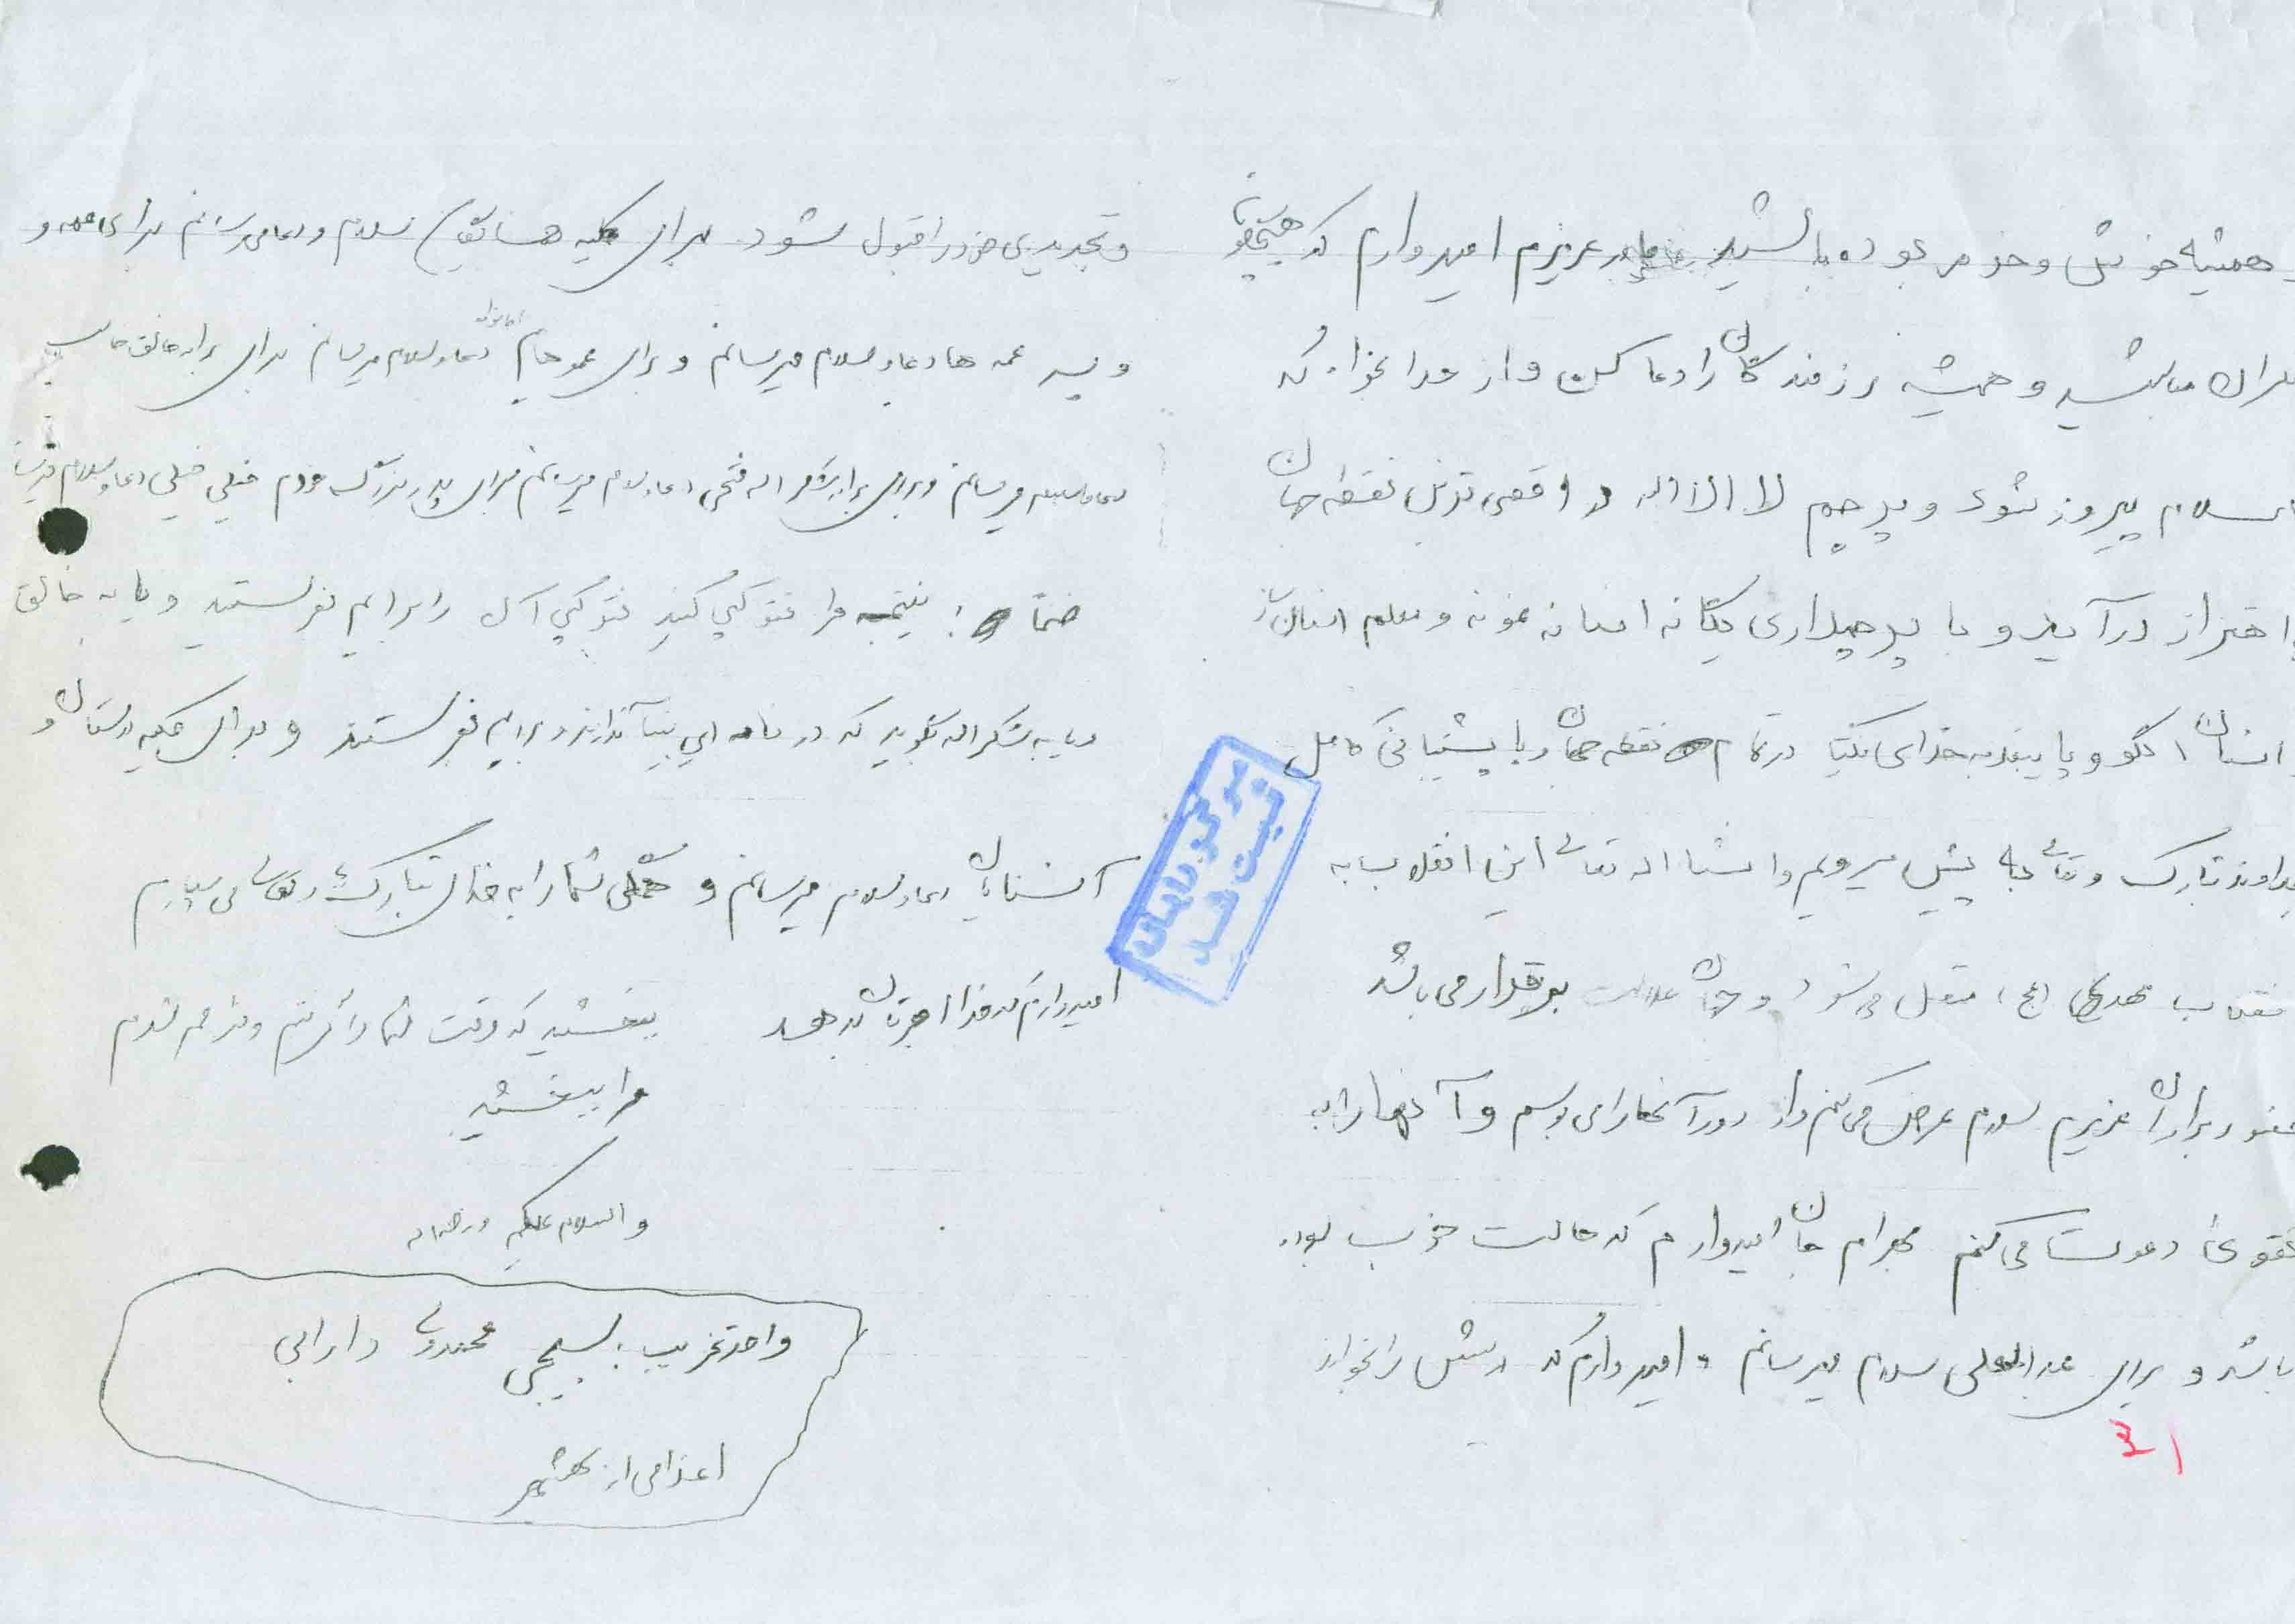 همیشه خوش و خرم بوده باشید مادر عزیزم امیدوارم که هیچگونه
نگران نباشید و همیشه رزمندگان را دعا کن و از خدا بخواه که
اسلام پیروز شود و پرچم لا اله الا اله در اقصی ترین نقطه جهان
با اهتزاز درآید و با پرچمداری یگانه انسان نمونه و معلم انسان ساز
انسان الگو و پایبند به خدای یکتا در تمام نقطه جهان و با پشتیبانی کامل
خداوند تبارک و تعالی به پیش میرویم و انشااله تعالی این انقلاب به
انقلاب مهدی (عج) متصل می شود و جهان عدالت برقرار می باشد
حضور برادران عزیزم سلام عرض می کنم و از دور آنها را می بوسم و آنها را به
تقوی دعوت می کنم بهرام جان امیدوارم که حالت خوب بوده
باشد و برای عبدالعلی سلام میرسانم و امیدوارم که درسش را بخواند
۳۱
و تجدیدی خود را قبول شود. برای کلیه همسایگان سلام و دعا می رسانم برای عمه و
و پسر عمه ها دعا و سلام میرسانم و برای عمو جانم دعا و سلام میرسانم برای برادر خالق
دعا و سلام میرسانم و برای برادر شکراله فتحی دعا و سلام میرسانم برای پدر بزرگ خودم خیلی خیلی دعا و سلام میرسانم
ضمناً : نتیجه مرا فتوکپی کنید فتوکپی آن را برایم بفرستید و یا به خالق
و یا به شکراله بگوید که در نامه ای بیاندازند و برایم بفرستند و برای کلیه دوستان و
آشنایان دعا و سلام میرسانم و همگی شما را به خدای تبارک و تعالی می سپارم
امیدوارم که خدا اجرتان بدهد ببخشید که وقت شما را گرفتم و مزاحم شدم
مرا ببخشید
والسلام علیکم و رحمه اله
واحد تخریب : بسیجی محمدولی دارابی
اعزامی از بهشهر
مرکز بازبینی
نیت شد